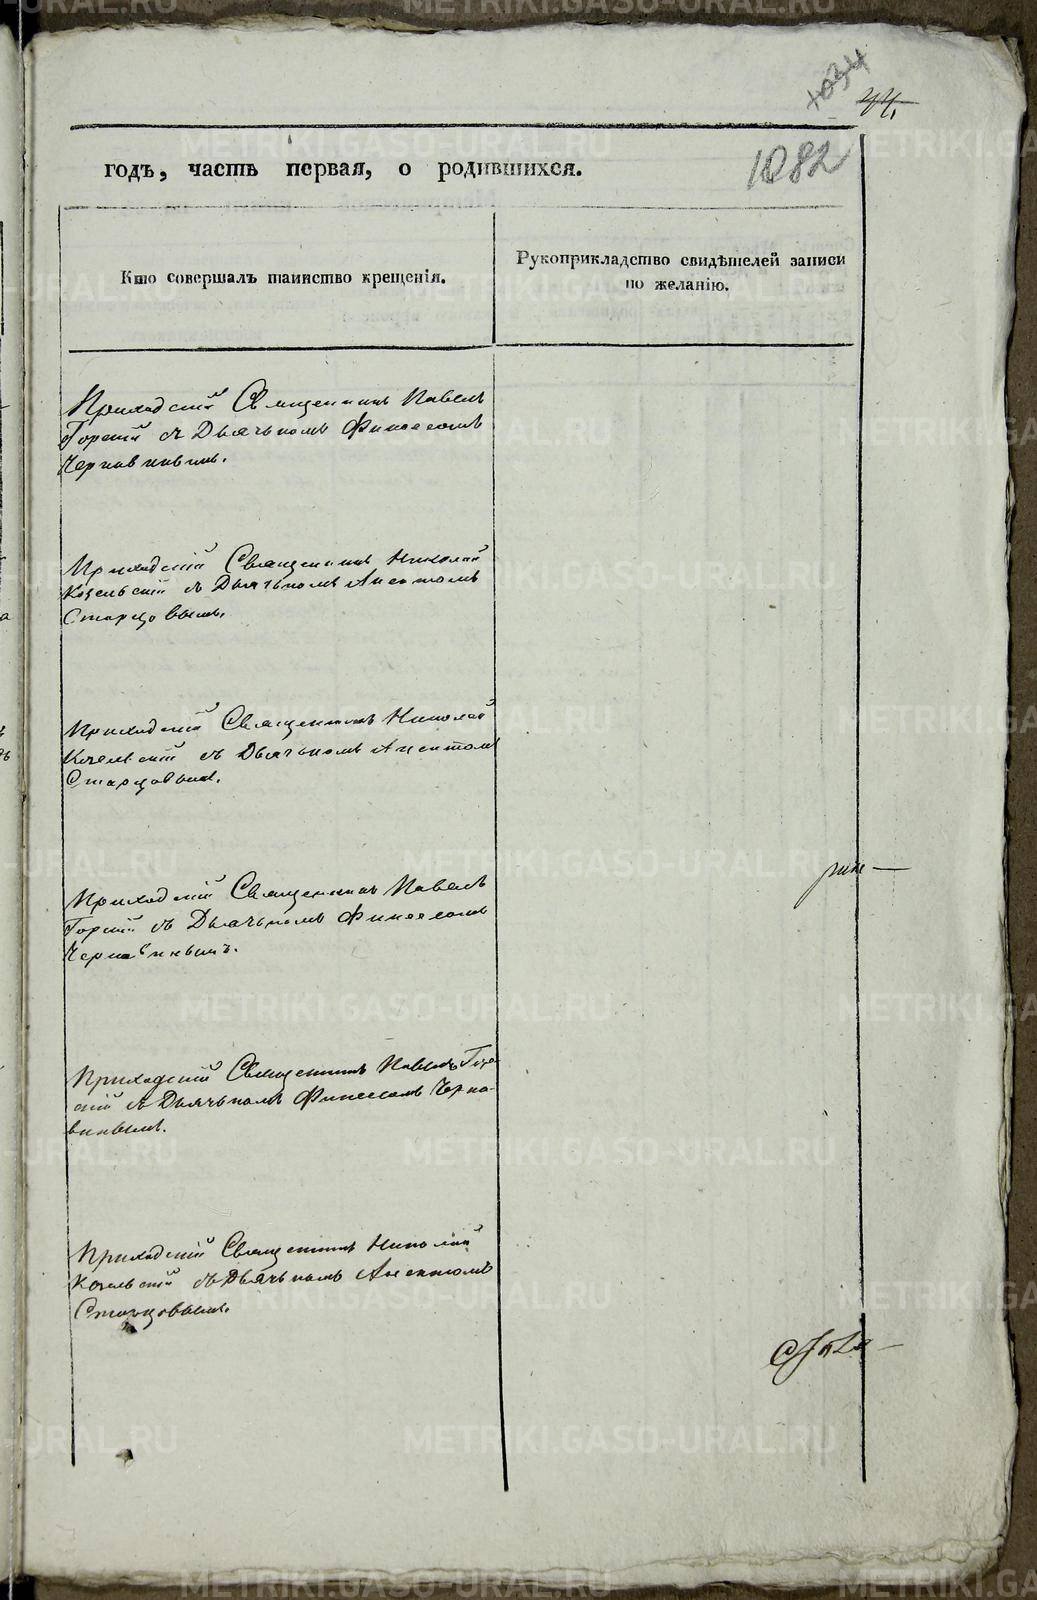 1034
44.
1082
годъ, часть первая, о родившихся.
Кто совершалъ таинство крещенія.
Рукоприкладство свидѣтелей записи
по желанію.
Приходскій Священникъ Павелъ
Горскій съ Дьячькомъ Финеесомъ
Чернавинымъ.
Приходскій Священникъ Николай
Козельскій съ Дьячькомъ Аиѳтомъ
Старцовымъ.
Приходскій Священникъ Николай
Козельскій съ Дьячькомъ
Старцовымъ.
Приходскій Священникъ Павелъ
Горскій съ Дьячькомъ Финеесомъ
Чернавинымъ.
Приходскій Священникъ Павелъ Гор-
скій съ Дьячькомъ Финеесомъ Черна-
винымъ.
Приходскій Священникъ Николай
Козельскій съ Дьячькомъ
Старцовымъ.
METRIKI.GASO-URAL.RU